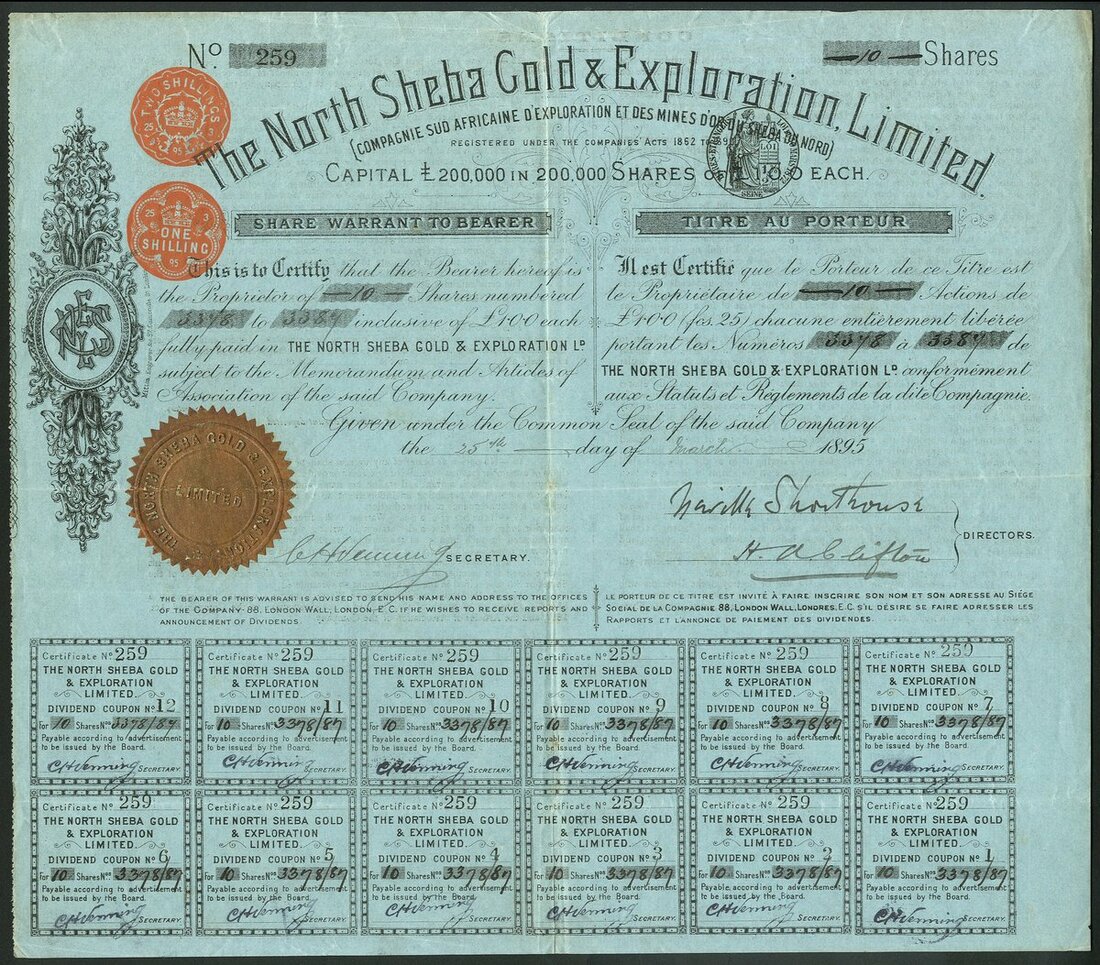 No. 259
—10— Shares
The North Sheba Gold & Exploration, Limited.
(COMPAGNIE SUD AFRICAINE D'EXPLORATION ET DES MINES D'OR DU SHEBA DU NORD)
REGISTERED UNDER THE COMPANIES' ACTS 1862 TO
CAPITAL £200,000 IN 200,000 SHARES OF £1.0.0 EACH.
TWO SHILLINGS
25 3
95
25 3
ONE
SHILLING
95
LOI
SEINE
SHARE WARRANT TO BEARER
This is to Certify that the Bearer hereof is
the Proprietor of —10— Shares numbered
3378 to 3387 inclusive of £1.0.0 each
fully paid in THE NORTH SHEBA GOLD & EXPLORATION LD
subject to the Memorandum and Articles of
Association of the said Company.
TITRE AU PORTEUR
Il est Certifié que le Porteur de ce Titre est
le Propriétaire de —10— Actions de
£1.0.0 (fcs. 25) chacune entièrement libérée
portant les Numéros 3378 à 3387 de
THE NORTH SHEBA GOLD & EXPLORATION LD conformément
aux Statuts et Réglements de la dite Compagnie.
Given under the Common Seal of the said Company
the 25th day of March 1895
THE NORTH SHEBA GOLD & EXPLORATION
LIMITED
C H Wenning SECRETARY.
Neville Shorthouse
H. A. Clifton
DIRECTORS.
THE BEARER OF THIS WARRANT IS ADVISED TO SEND HIS NAME AND ADDRESS TO THE OFFICES
OF THE COMPANY 88, LONDON WALL, LONDON, E.C. IF HE WISHES TO RECEIVE REPORTS AND
ANNOUNCEMENT OF DIVIDENDS
LE PORTEUR DE CE TITRE EST INVITÉ À FAIRE INSCRIRE SON NOM ET SON ADRESSE AU SIÉGE
SOCIAL DE LA COMPAGNIE 88, LONDON WALL, LONDRES. E.C. S'IL DÉSIRE SE FAIRE ADRESSER LES
RAPPORTS ET L'ANNONCE DE PAIEMENT DES DIVIDENDES.
Certificate No. 259
THE NORTH SHEBA GOLD
& EXPLORATION
LIMITED.
DIVIDEND COUPON No. 12
For 10 Shares Nos. 3378/87
Payable according to advertisement
to be issued by the Board.
C H Wenning SECRETARY.
Certificate No. 259
THE NORTH SHEBA GOLD
& EXPLORATION
LIMITED.
DIVIDEND COUPON No. 11
For 10 Shares Nos. 3378/87
Payable according to advertisement
to be issued by the Board.
C H Wenning SECRETARY.
Certificate No. 259
THE NORTH SHEBA GOLD
& EXPLORATION
LIMITED.
DIVIDEND COUPON No. 10
For 10 Shares Nos. 3378/87
Payable according to advertisement
to be issued by the Board.
C H Wenning SECRETARY.
Certificate No. 259
THE NORTH SHEBA GOLD
& EXPLORATION
LIMITED.
DIVIDEND COUPON No. 9
For 10 Shares Nos. 3378/87
Payable according to advertisement
to be issued by the Board.
C H Wenning SECRETARY.
Certificate No. 259
THE NORTH SHEBA GOLD
& EXPLORATION
LIMITED.
DIVIDEND COUPON No. 8
For 10 Shares Nos. 3378/87
Payable according to advertisement
to be issued by the Board.
C H Wenning SECRETARY.
Certificate No. 259
THE NORTH SHEBA GOLD
& EXPLORATION
LIMITED.
DIVIDEND COUPON No. 7
For 10 Shares Nos. 3378/87
Payable according to advertisement
to be issued by the Board.
C H Wenning SECRETARY.
Certificate No. 259
THE NORTH SHEBA GOLD
& EXPLORATION
LIMITED.
DIVIDEND COUPON No. 6
For 10 Shares Nos. 3378/87
Payable according to advertisement
to be issued by the Board.
C H Wenning SECRETARY.
Certificate No. 259
THE NORTH SHEBA GOLD
& EXPLORATION
LIMITED.
DIVIDEND COUPON No. 5
For 10 Shares Nos. 3378/87
Payable according to advertisement
to be issued by the Board.
C H Wenning SECRETARY.
Certificate No. 259
THE NORTH SHEBA GOLD
& EXPLORATION
LIMITED.
DIVIDEND COUPON No. 4
For 10 Shares Nos. 3378/87
Payable according to advertisement
to be issued by the Board.
C H Wenning SECRETARY.
Certificate No. 259
THE NORTH SHEBA GOLD
& EXPLORATION
LIMITED.
DIVIDEND COUPON No. 3
For 10 Shares Nos. 3378/87
Payable according to advertisement
to be issued by the Board.
C H Wenning SECRETARY.
Certificate No. 259
THE NORTH SHEBA GOLD
& EXPLORATION
LIMITED.
DIVIDEND COUPON No. 2
For 10 Shares Nos. 3378/87
Payable according to advertisement
to be issued by the Board.
C H Wenning SECRETARY.
Certificate No. 259
THE NORTH SHEBA GOLD
& EXPLORATION
LIMITED.
DIVIDEND COUPON No. 1
For 10 Shares Nos. 3378/87
Payable according to advertisement
to be issued by the Board.
C H Wenning SECRETARY.